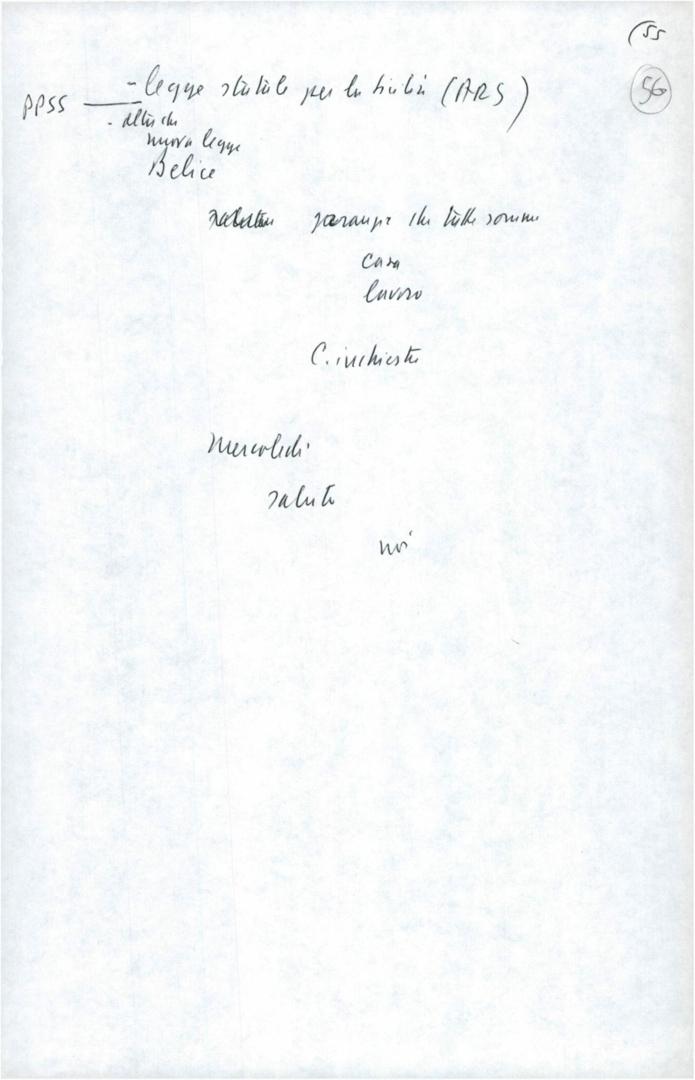 55
56
- legge statale per la Sicilia (ARS)
PPSS
- oltre che
nuova legge
Belice
garanzie che tutte
casa
lavoro
C. inchiesta
Mercoledì
saluto
noi